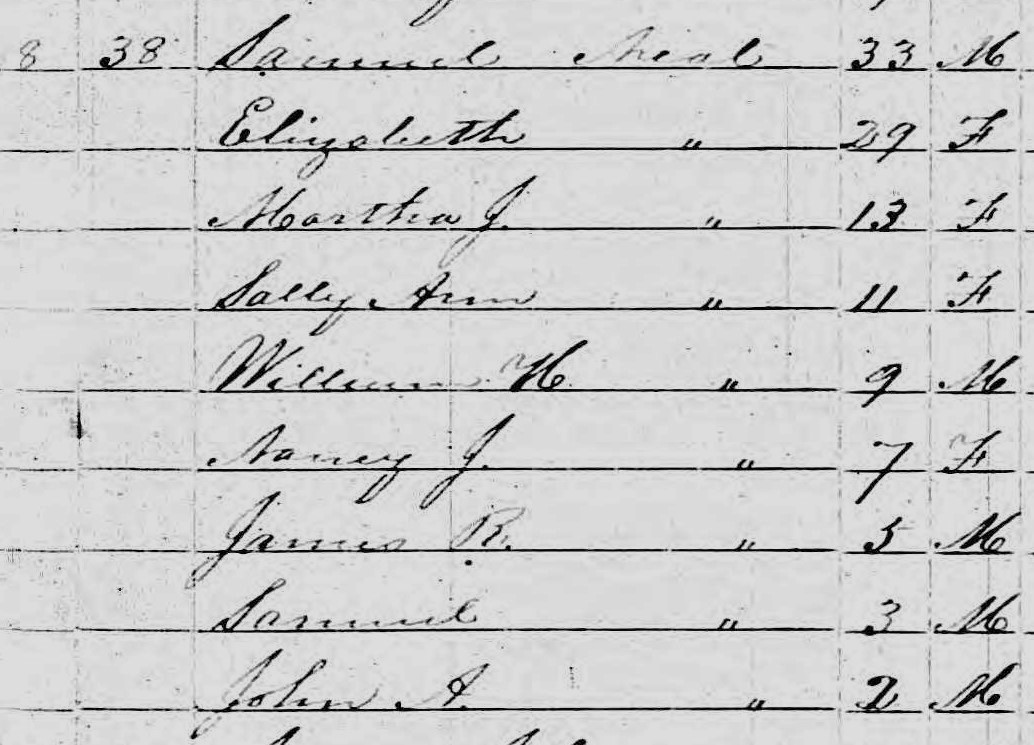 8 38 Samuel Neal 33 M
Elizabeth " 29 F
Martha J. " 13 F
Sally Ann " 11 F
William H " 9 M
Nancy J. " 7 F
James R. " 5 M
Samuel " 3 M
John A. " 2 M